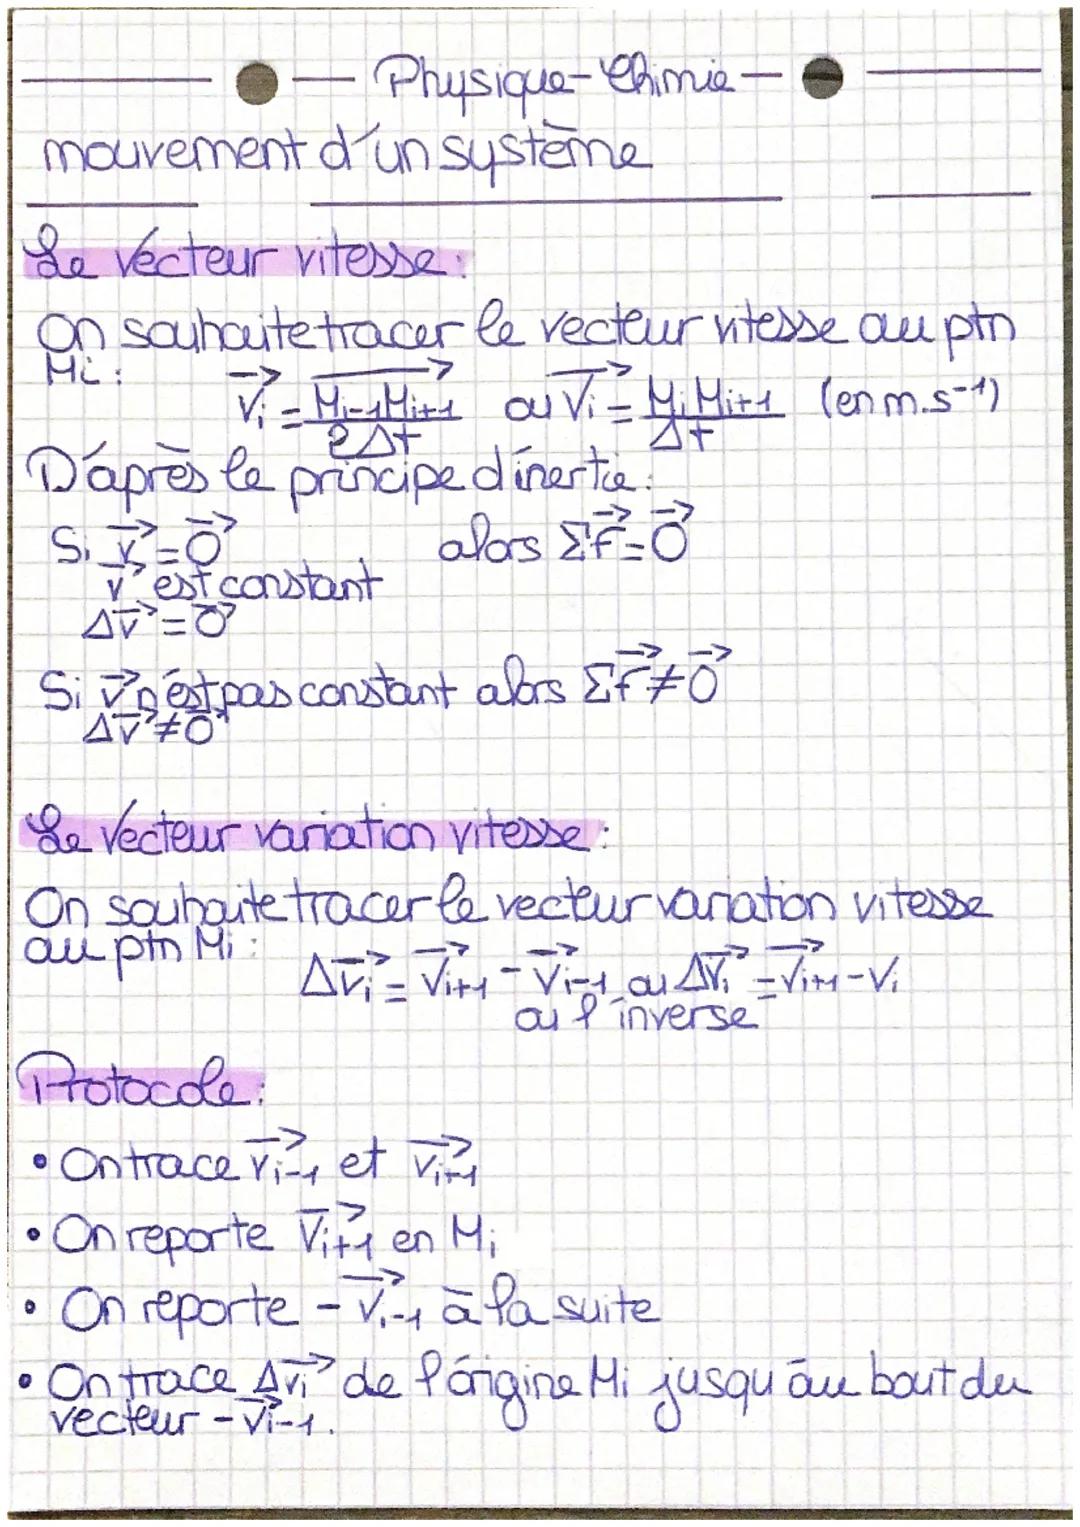 Physique-Chimie
mouvement d'un système
Le vecteur vitesse :
On souhaite tracer le vecteur vitesse au ptn
Mi :
V⃗i = M⃗i-1Mi+1 / 2Δt ou V⃗i = MiMi+1 / Δt (en m.s⁻¹)
D'après le principe d'inertie :
Si v⃗ = 0⃗ alors ΣF⃗ = 0⃗
v⃗ est constant
Δv⃗ = 0⃗
Si v⃗ n'est pas constant alors Σf⃗ ≠ 0⃗
Δv⃗ ≠ 0⃗
Le vecteur variation vitesse :
On souhaite tracer le vecteur variation vitesse
au ptn Mi :
Δv⃗i = v⃗i+1 - v⃗i-1 ou Δv⃗i = v⃗i+1 - vi
ou l'inverse
Protocole :
• On trace v⃗i-1 et v⃗i+1
• On reporte v⃗i+1 en Mi
• On reporte - v⃗i-1 à la suite
• On trace Δv⃗i de l'origine Mi jusqu'au bout du
vecteur - v⃗i-1.